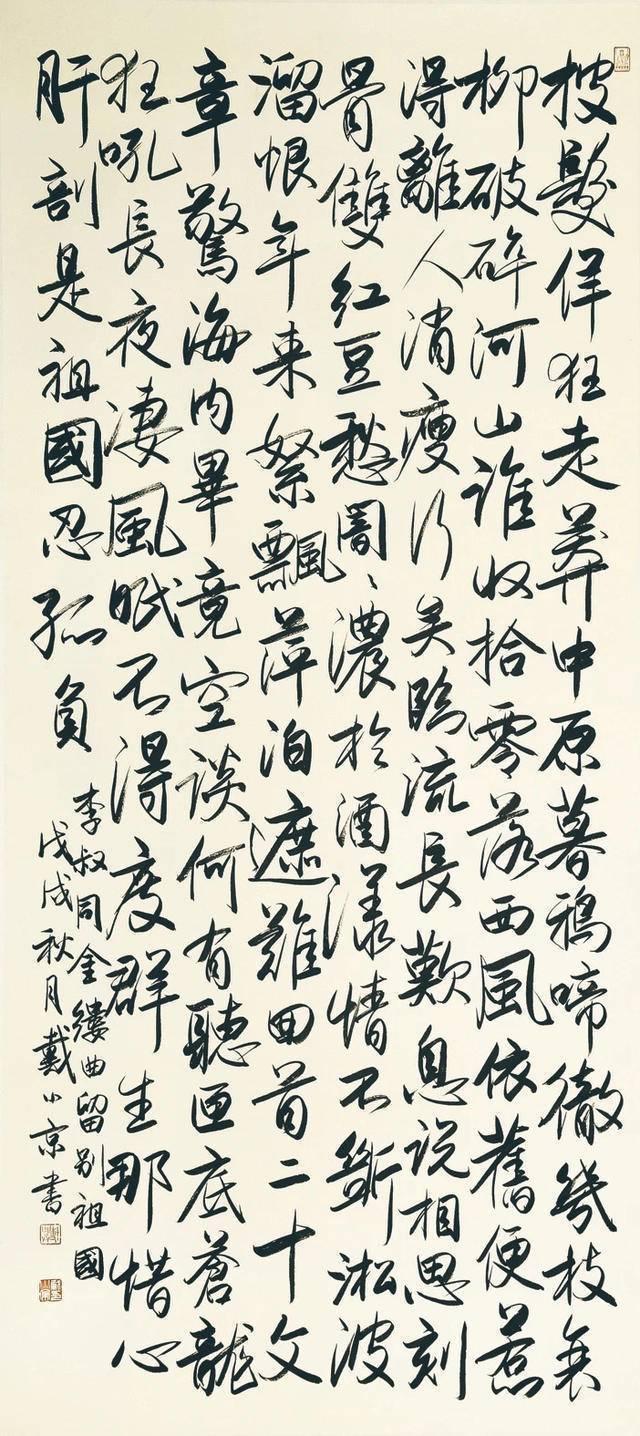 披髮佯狂走莽中原暮鴉啼徹幾枝衰
柳破碎河山誰收拾零落西風依舊便惹
得離人消瘦行矣臨流長歎息說相思刻
骨雙紅豆愁闇〻濃於酒漾情不斷淞波
溜恨年來絮飄萍泊遮難回首二十文
章驚海內畢竟空談何有聽匣底蒼龍
狂吼長夜淒風眠不得度群生那惜心
肝剖是祖國忍孤負
李叔同金縷曲留別祖國
戊戌秋月戴小京書